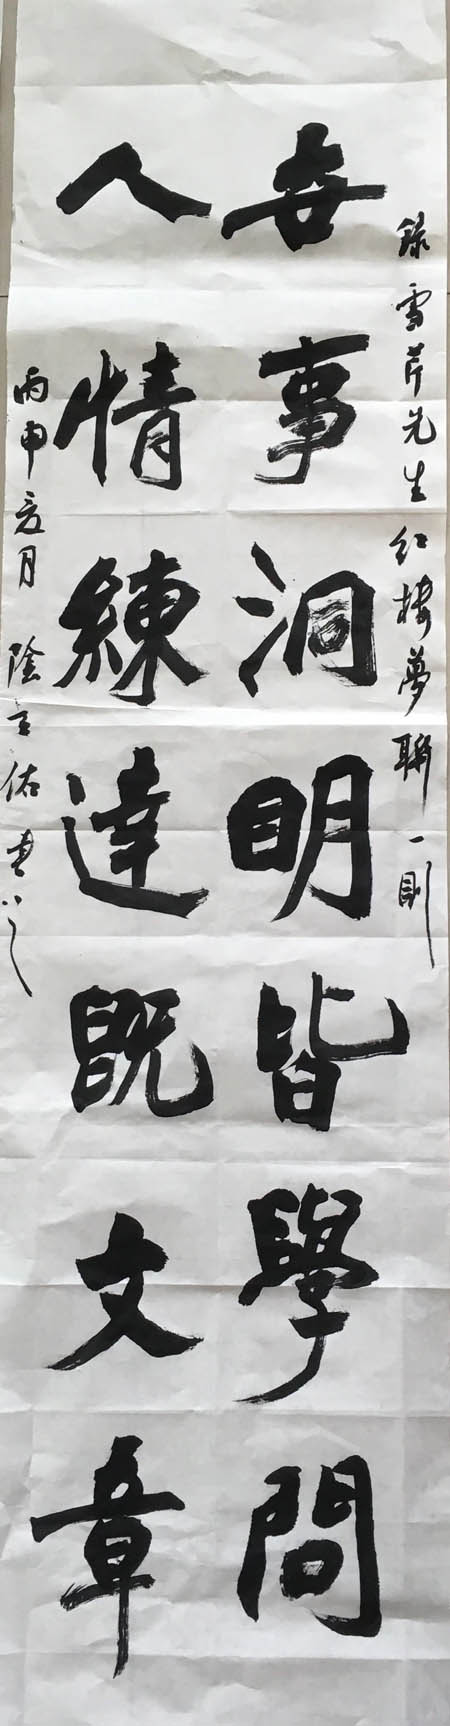 錄雪芹先生红樓夢聯一則
每事洞明皆學問
人情練達既文章
丙申夏月 陰王佑書